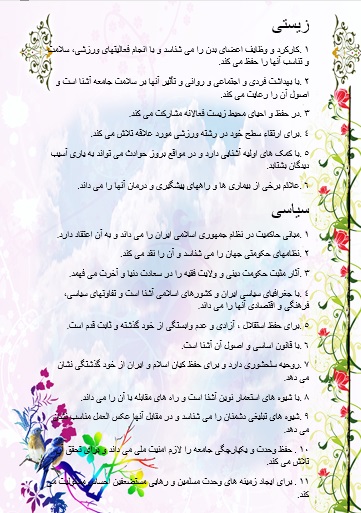 زیستی
۱ .کارکرد و وظایف اعضای بدن را می شناسد و با انجام فعالیتهای ورزشی، سلامت
و تناسب آنها را حفظ می کند.
۲ .با بهداشت فردی و اجتماعی و روانی و تأثیر آنها بر سلامت جامعه آشنا است و
اصول آن را رعایت می کند.
۳ .در حفظ و احیای محیط زیست فعالانه مشارکت می کند.
۴ .برای ارتقاء سطح خود در رشته ورزشی مورد علاقه تلاش می کند.
۵ .با کمک های اولیه آشنایی دارد و در مواقع بروز حوادث می تواند به یاری آسیب
دیدگان بشتابد.
۶ .علائم برخی از بیماری ها و راههای پیشگیری و درمان آنها را می داند.
سیاسی
۱ .مبانی حاکمیت در نظام جمهوری اسلامی ایران را می داند و به آن اعتقاد دارد.
۲ .نظامهای حکومتی جهان را می شناسد و آن را نقد می کند.
۳ .آثار مثبت حکومت دینی و ولایت فقیه را در سعادت دنیا و آخرت می فهمد.
۴ .با جغرافیای سیاسی ایران و کشورهای اسلامی آشنا است و تفاوتهای سیاسی،
فرهنگی و اقتصادی آنها را می داند.
۵ .برای حفظ استقلال ، آزادی و عدم وابستگی از خود گذشته و ثابت قدم است.
۶ .با قانون اساسی و اصول آن آشنا است.
۷ .روحیه سلحشوری دارد و برای حفظ کیان اسلام و ایران از خود گذشتگی نشان
می دهد.
۸ .با شیوه های استعمار نوین آشنا است و راه های مقابله با آن را می داند.
۹ .شیوه های تبلیغی دشمنان را می شناسد و در مقابل آنها عکس العمل مناسب نشان
می دهد.
۱۰ . حفظ وحدت و یکپارچگی جامعه را لازم امنیت ملی می داند و برای تحقق آن
تلاش می کند.
۱۱ . برای ایجاد زمینه های وحدت مسلمین و رهایی مستضعفین احساس مسئولیت می
کند.